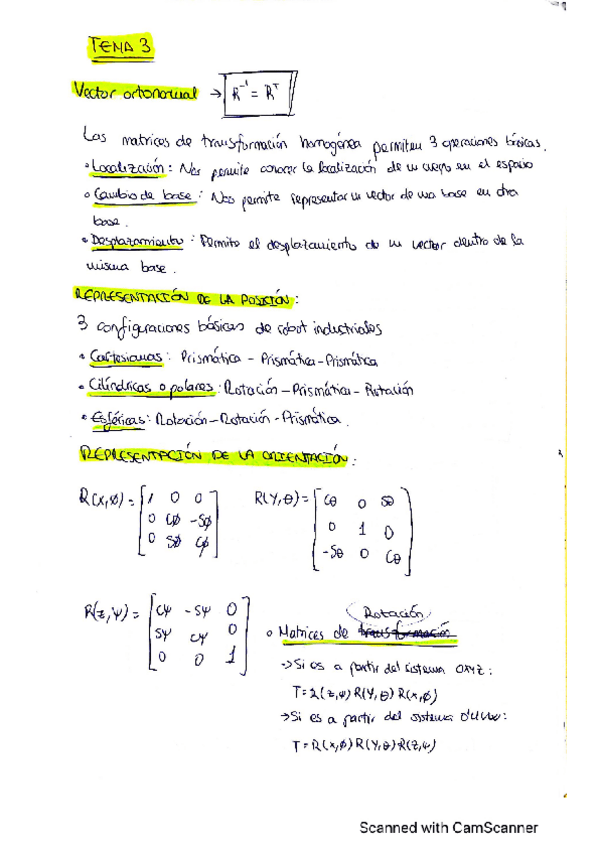 TEMA 3
Vector ortonormal → R⁻¹ = Rᵀ
Las matrices de transformación homogénea permiten 3 operaciones básicas.
• Localización: Nos permite conocer la localización de un cuerpo en el espacio
• Cambio de base: Nos permite representar un vector de una base en otra
base.
• Desplazamiento: Permite el desplazamiento de un vector dentro de la
misma base.
REPRESENTACIÓN DE LA POSICIÓN:
3 configuraciones básicas de robot industriales
• Cartesianas: Prismática - Prismática - Prismática
• Cilíndricas o polares: Rotación - Prismática - Rotación
• Esféricas: Rotación - Rotación - Prismática.
REPRESENTACIÓN DE LA ORIENTACIÓN:
R(x,ø) = [1 0 0
0 Cø -Sø
0 Sø Cø]
R(Y,θ) = [Cθ 0 Sθ
0 1 0
-Sθ 0 Cθ]
R(z,ψ) = [Cψ -Sψ 0
Sψ Cψ 0
0 0 1]
Rotación
• Matrices de transformación
→ Si es a partir del sistema OXYZ:
T = R(z,ψ) R(Y,θ) R(x,ø)
→ Si es a partir del sistema O'UVW:
T = R(x,ø) R(Y,θ) R(z,ψ)
Scanned with CamScanner